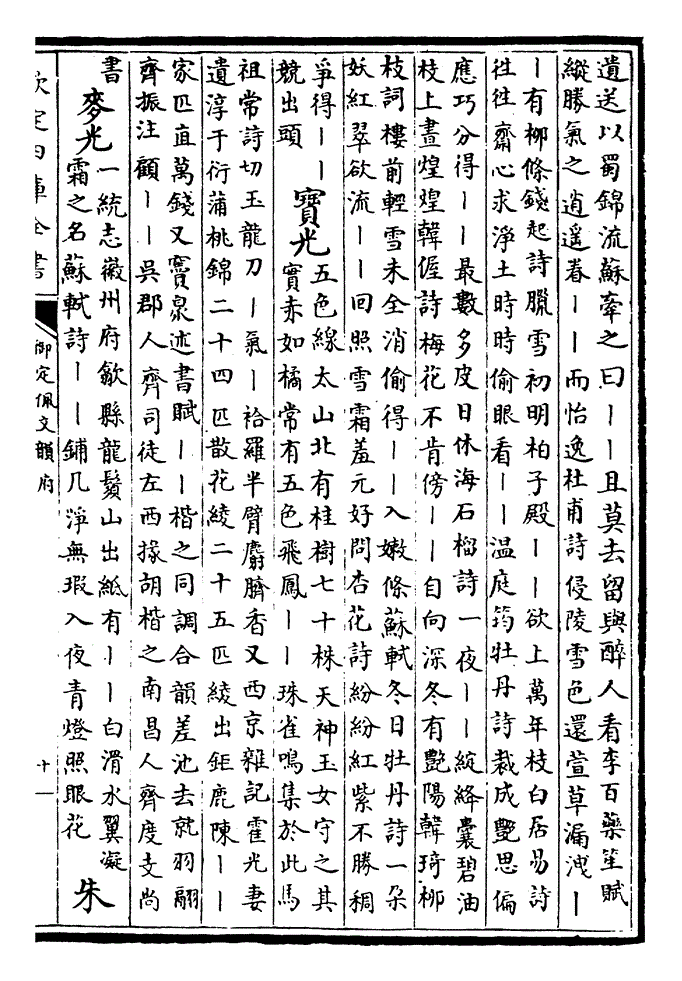 遺送以蜀錦流蘇牽之曰｜｜且莫去留與醉人看李百藥笙賦
縱勝氣之逍遥春｜｜而怡逸杜甫詩侵陵雪色還萱草漏洩｜
｜有柳條錢起詩臘雪初明柏子殿｜｜欲上萬年枝白居易詩
往往齋心求淨土時時偷眼看｜｜温庭筠牡丹詩裁成艷思偏
應巧分得｜｜最數多皮日休海石榴詩一夜｜｜綻絳囊碧油
枝上晝煌煌韓偓詩梅花不肯傍｜｜自向深冬有艷陽韓琦柳
枝詞樓前輕雪未全消偷得｜｜入嫩條蘇軾冬日牡丹詩一朶
妖紅翠欲流｜｜回照雪霜羞元好問杏花詩紛紛紅紫不勝稠
爭得｜｜
競出頭
寶光
五色線太山北有桂樹七十株天神玉女守之其
實赤如橘常有五色飛鳳｜｜珠雀鳴集於此馬
祖常詩切玉龍刀｜氣｜袷羅半臂麝臍香又西京雜記霍光妻
遺淳于衍蒲桃錦二十四匹散花綾二十五匹綾出鉅鹿陳｜｜
家匹直萬錢又竇泉述書賦｜｜楷之同調合韻差池去就羽翮
齊振注顧｜｜吳郡人齊司徒左西掾胡楷之南昌人齊度支尚
書
麥光
一統志徽州府歙縣龍鬚山出紙有｜｜白滑水翼凝
霜之名蘇軾詩｜｜鋪几淨無瑕入夜青燈照眼花
朱
欽定四庫全書
御定佩文韻府
十一